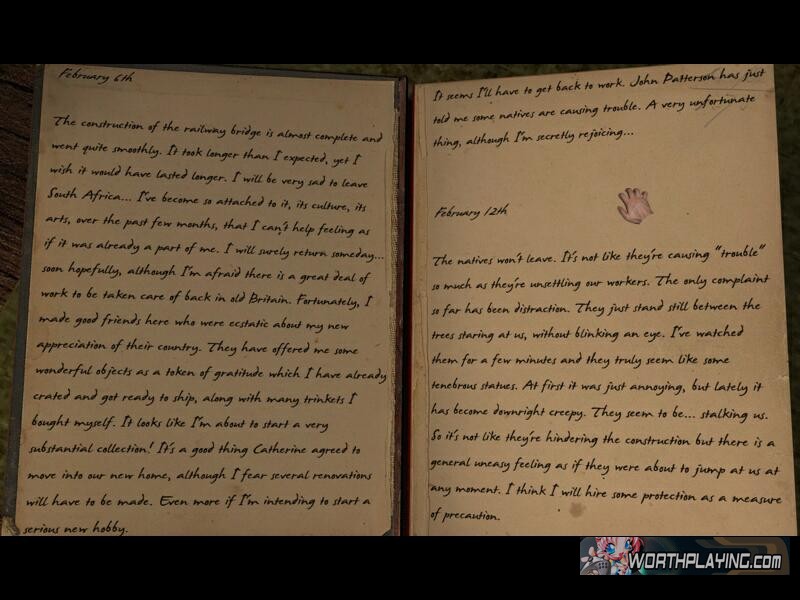 February 6th
The construction of the railway bridge is almost complete and
went quite smoothly. It took longer than I expected, yet I
wish it would have lasted longer. I will be very sad to leave
South Africa... I've become so attached to it, its culture, its
arts, over the past few months, that I can't help feeling as
if it was already a part of me. I will surely return someday...
soon hopefully, although I'm afraid there is a great deal of
work to be taken care of back in old Britain. Fortunately, I
made good friends here who were ecstatic about my new
appreciation of their country. They have offered me some
wonderful objects as a token of gratitude which I have already
crated and got ready to ship, along with many trinkets I
bought myself. It looks like I'm about to start a very
substantial collection! It's a good thing Catherine agreed to
move into our new home, although I fear several renovations
will have to be made. Even more if I'm intending to start a
serious new hobby.
It seems I'll have to get back to work. John Patterson has just
told me some natives are causing trouble. A very unfortunate
thing, although I'm secretly rejoicing...
February 12th
The natives won't leave. It's not like they're causing "trouble"
so much as they're unsettling our workers. The only complaint
so far has been distraction. They just stand still between the
trees staring at us, without blinking an eye. I've watched
them for a few minutes and they truly seem like some
tenebrous statues. At first it was just annoying, but lately it
has become downright creepy. They seem to be... stalking us.
So it's not like they're hindering the construction but there is a
general uneasy feeling as if they were about to jump at us at
any moment. I think I will hire some protection as a measure
of precaution.
WORTHPLAYING.COM